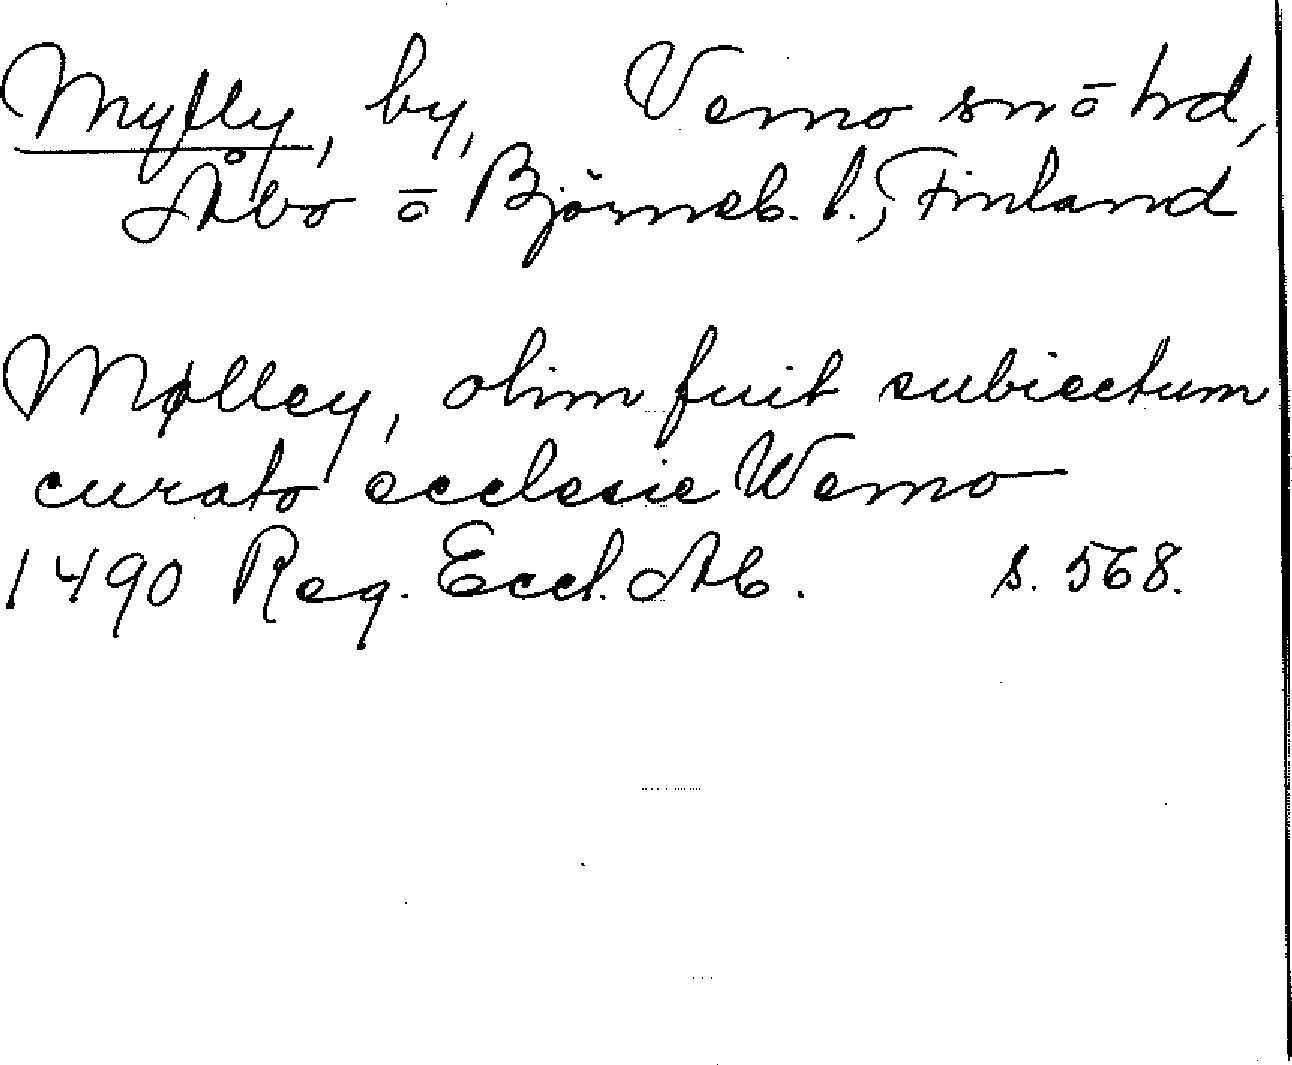 Mylly, by, Vemo sn ō hd,
Åbo ō Björneb. l., Finland
Mølley, olim fuit subiectum
curato ecclesie Wemo
1490 Reg. Eccl. Ab. s. 568.